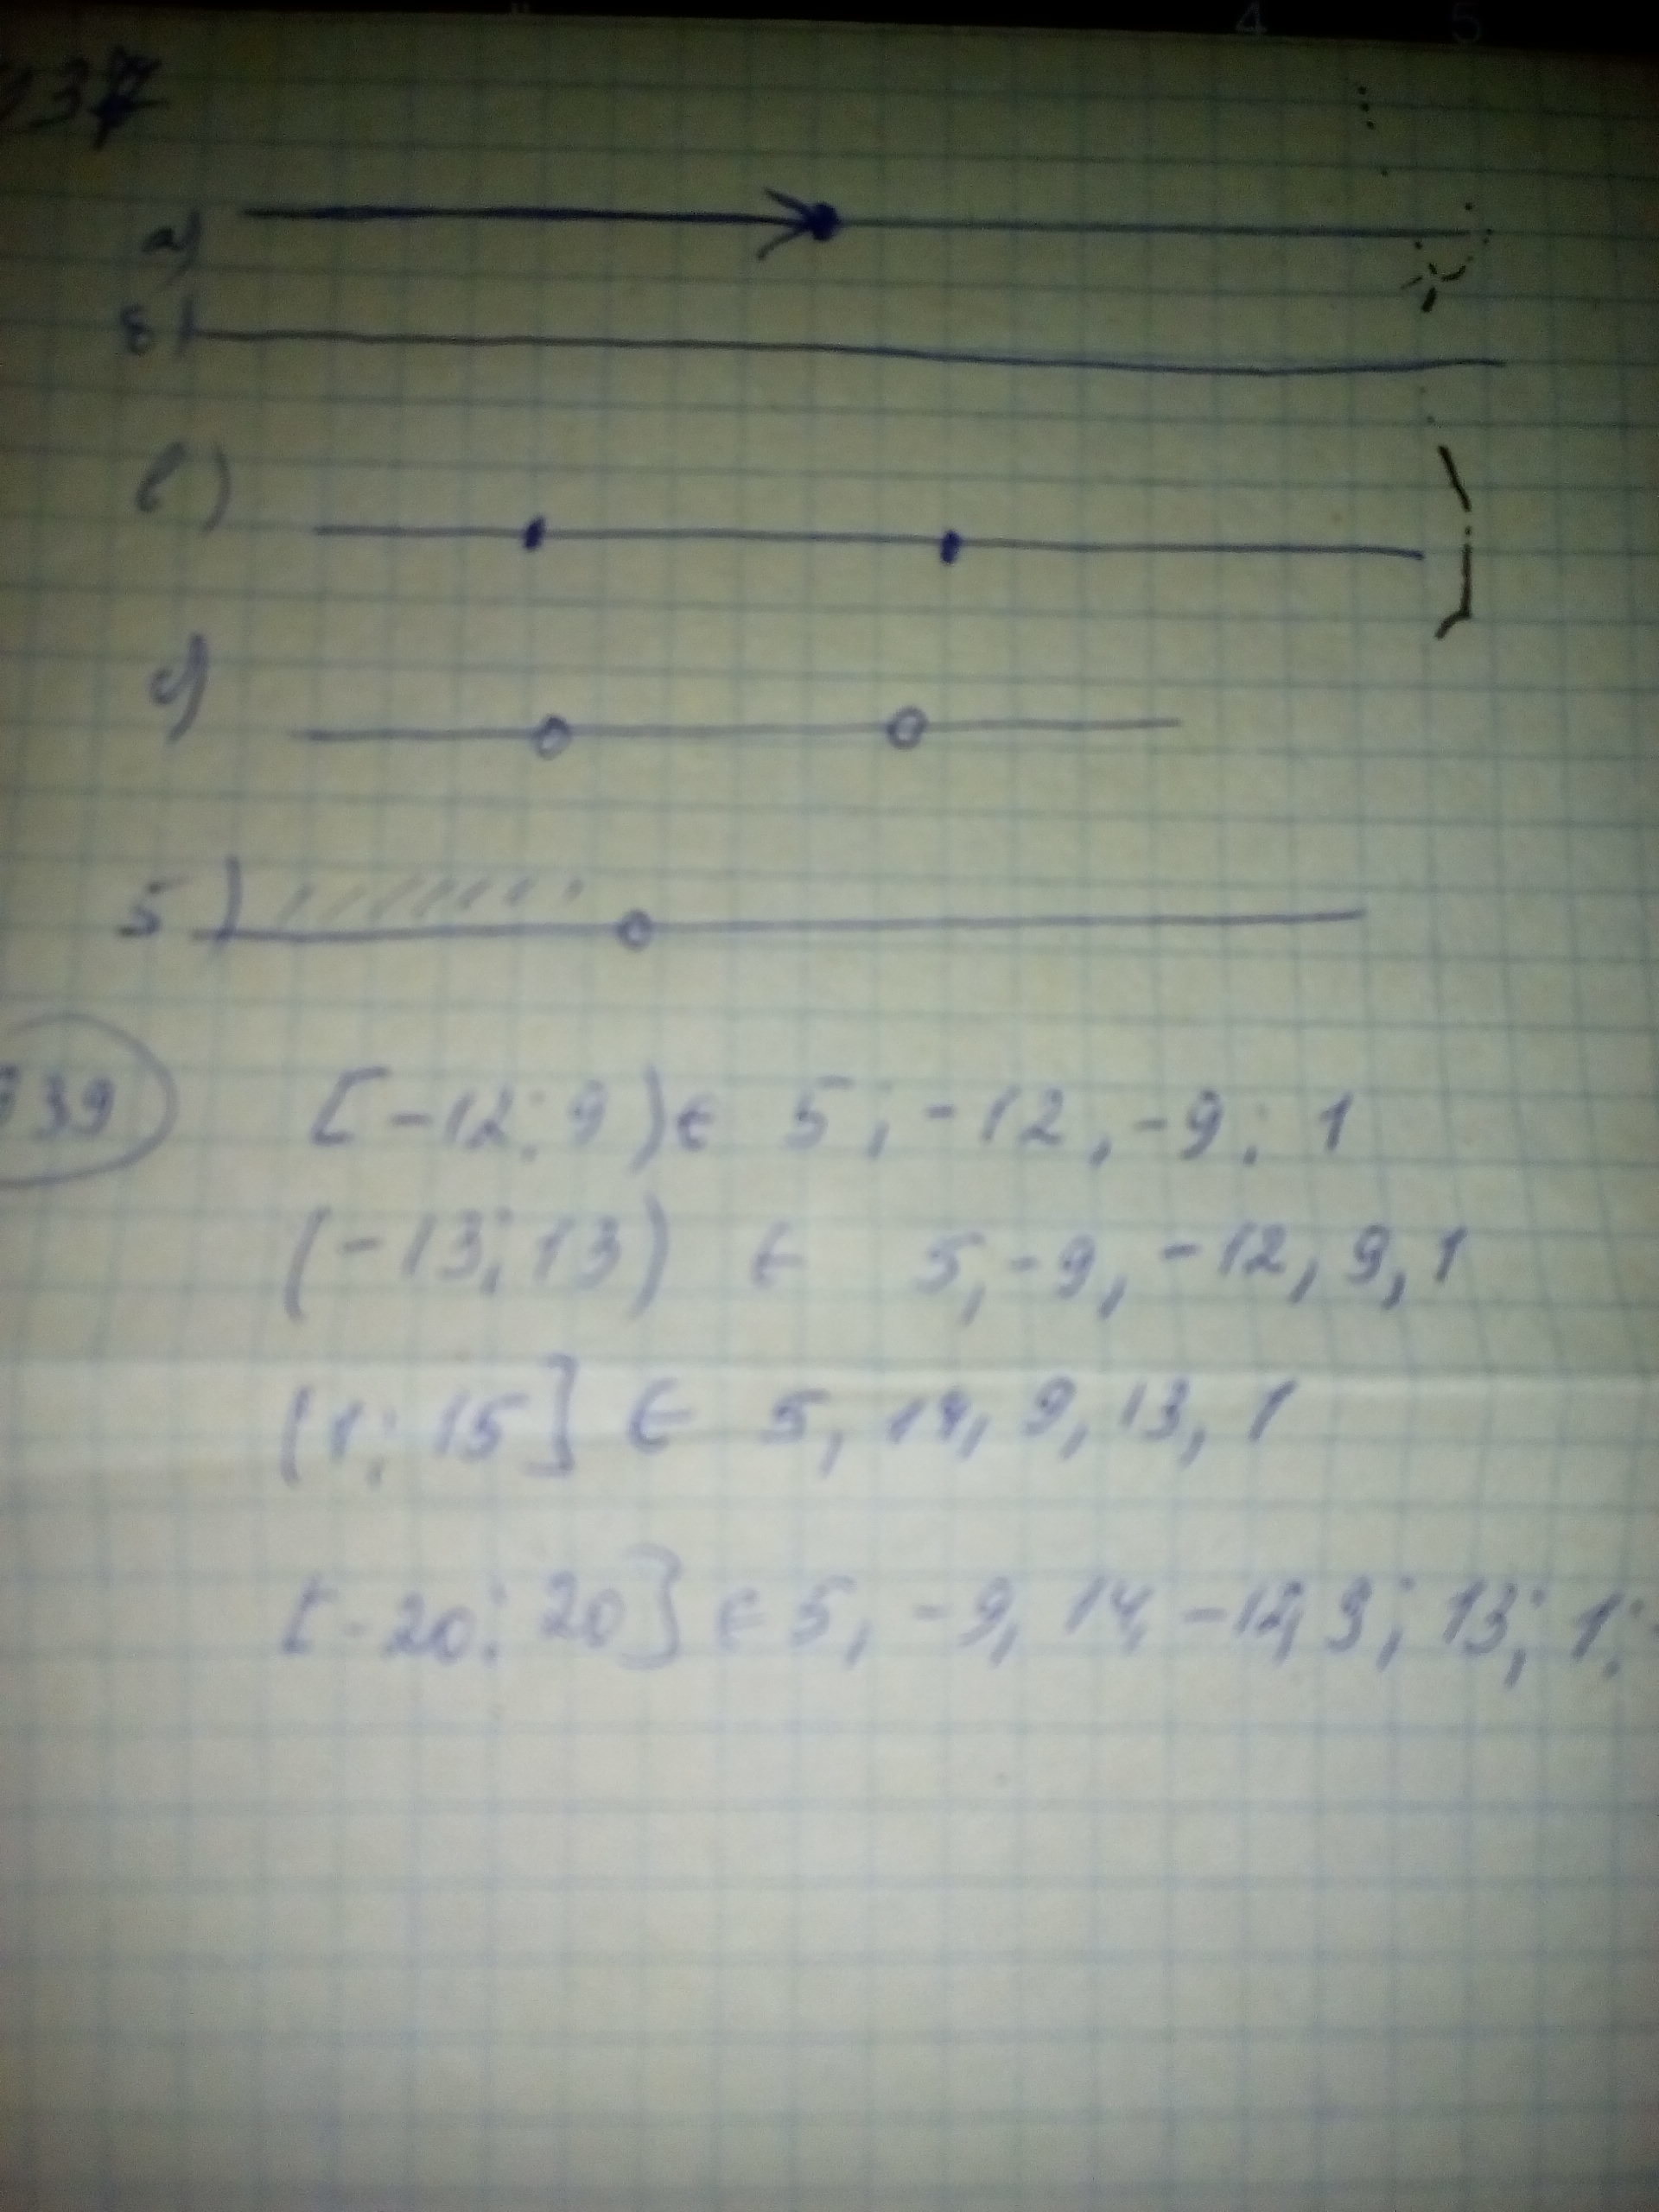 37
а)
б)
в)
с)
5)
39 [-12; 9) ∈ 5; -12, -9; 1
(-13; 13) ∈ 5, -9, -12, 9, 1
(1; 15] ∈ 5, 14, 9, 13, 1
[-20; 20] ∈ 5, -9, 14, -12, 9; 13; 1;